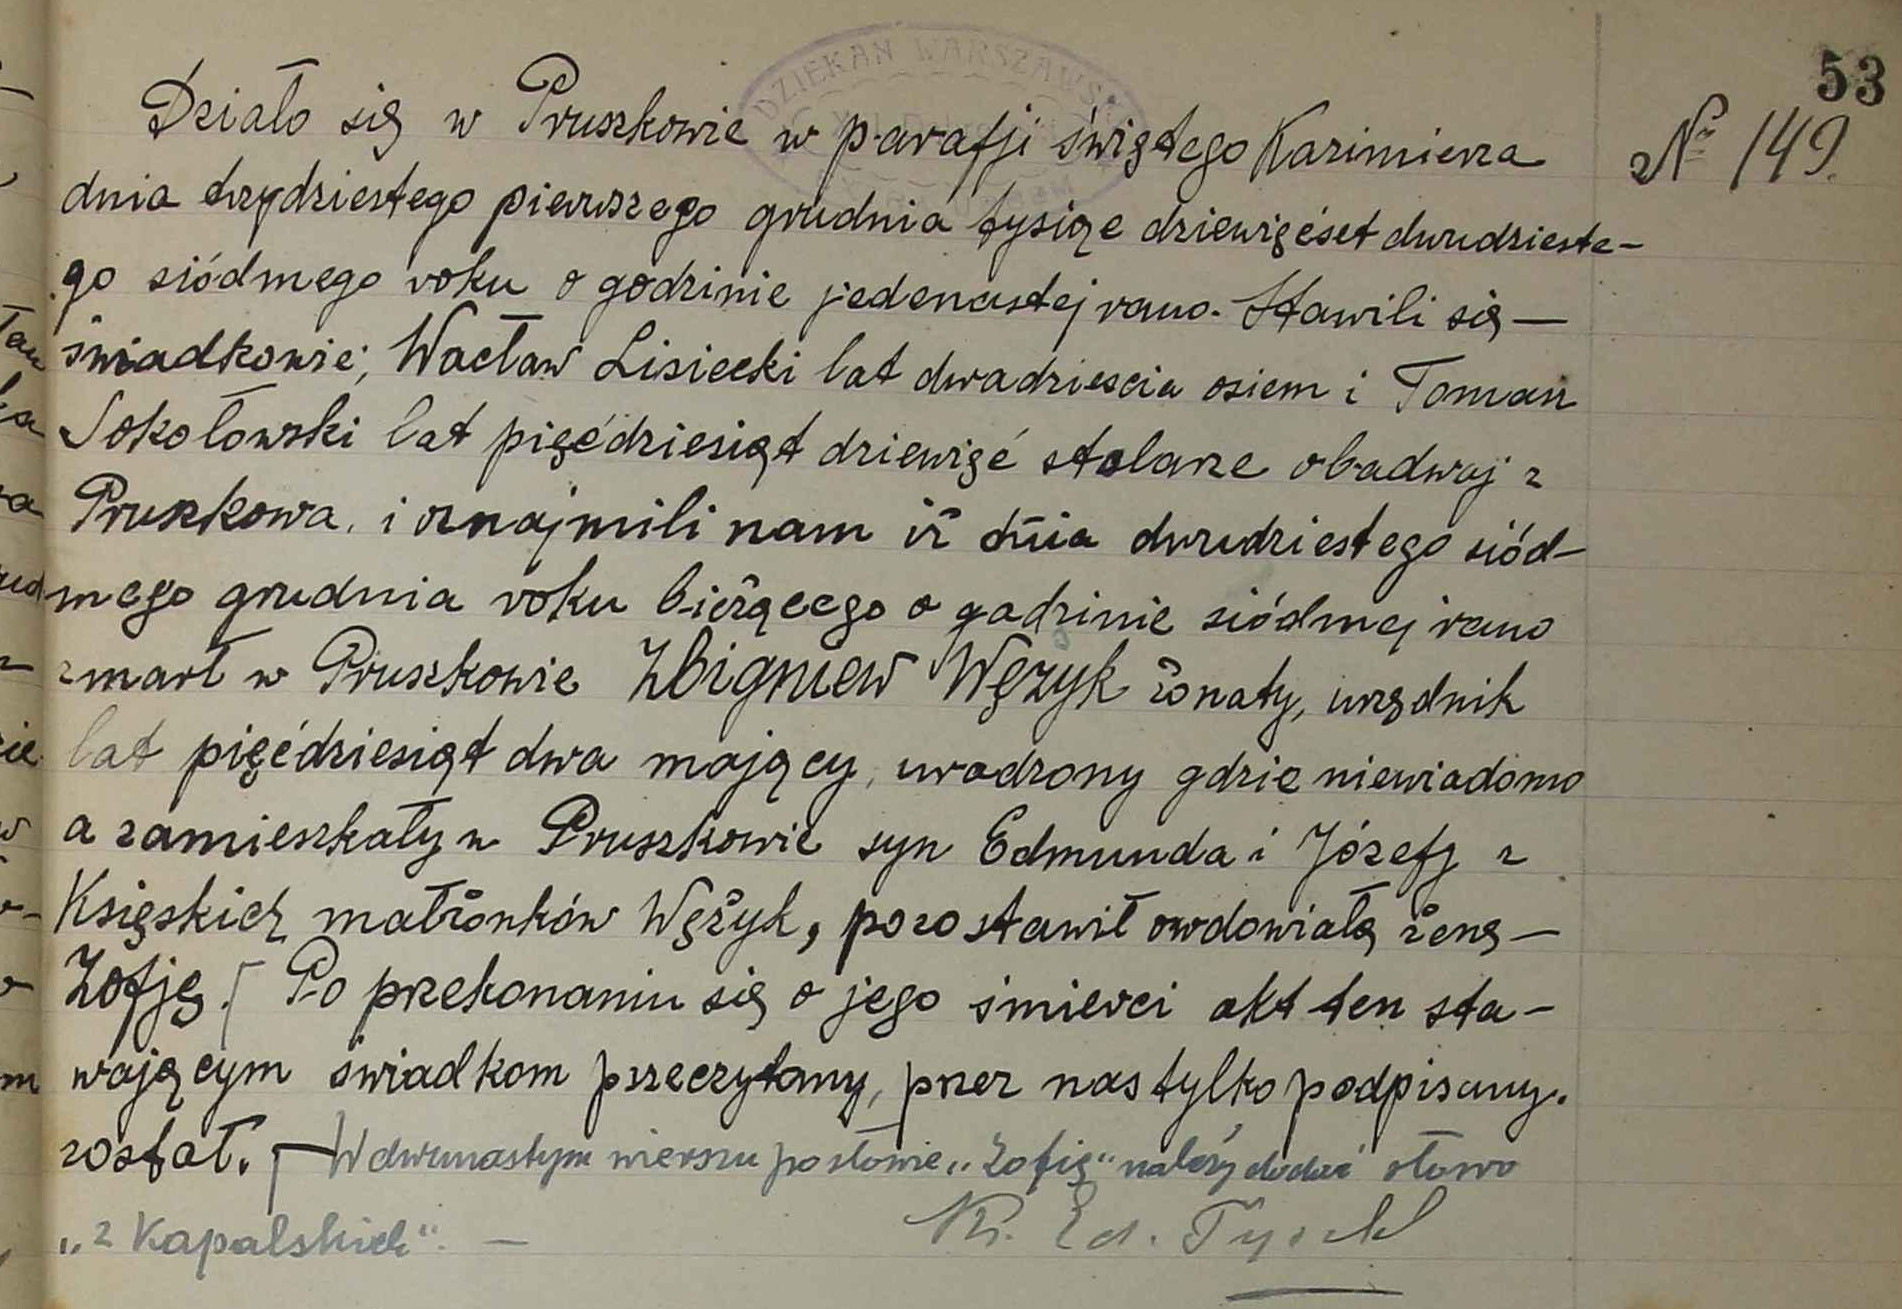 53
№ 149.
DZIEKAN WARSZAWSKI
Działo się w Pruszkowie w parafji świętego Kazimierza
dnia trzydziestego pierwszego grudnia tysiąc dziewięćset dwudzieste-
go siódmego roku o godzinie jedenastej rano. Stawili się —
świadkowie; Wacław Lisiecki lat dwadzieścia osiem i Toman
Sokołowski lat pięćdziesiąt dziewięć stolarze obadwaj z
Pruszkowa, i oznajmili nam iż dnia dwudziestego siód-
mego grudnia roku bieżącego o godzinie siódmej rano
zmarł w Pruszkowie Zbigniew Wężyk żonaty, urzędnik
lat pięćdziesiąt dwa mający, urodzony gdzie niewiadomo
a zamieszkały w Pruszkowie syn Edmunda i Józefy z
Księskich małżonków Wężyk, pozostawił owdowiałą żonę —
Zofję. Po przekonaniu się o jego śmierci akt ten sta-
wającym świadkom przeczytany, przez nas tylko podpisany.
został. W dwunastym wierszu po słowie „Zofię" należy dodać słowo
„z Kapalskich". —
Ks. Ed. Tyszka